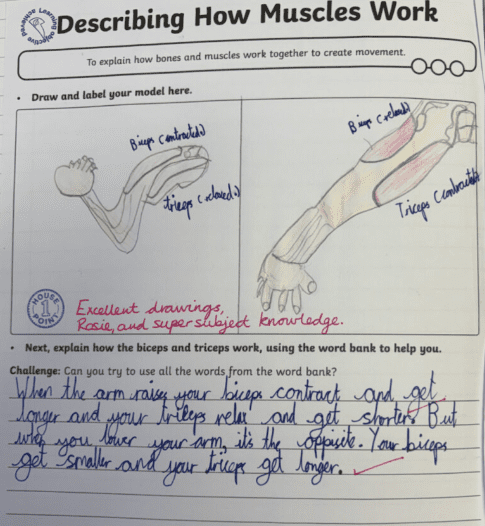 Learning objective achieved
Describing How Muscles Work
To explain how bones and muscles work together to create movement.
• Draw and label your model here.
Biceps (contracted)
triceps (relaxed)
Biceps (relaxed)
Triceps (contracted)
HOUSE
1
POINT
Excellent drawings,
Rosie, and super subject knowledge.
• Next, explain how the biceps and triceps work, using the word bank to help you.
Challenge: Can you try to use all the words from the word bank?
When the arm raises your biceps contract and get
longer and your triceps relax and get shorter. But
when you lower your arm, it's the oppisite. Your biceps
get smaller and your tricep get longer.